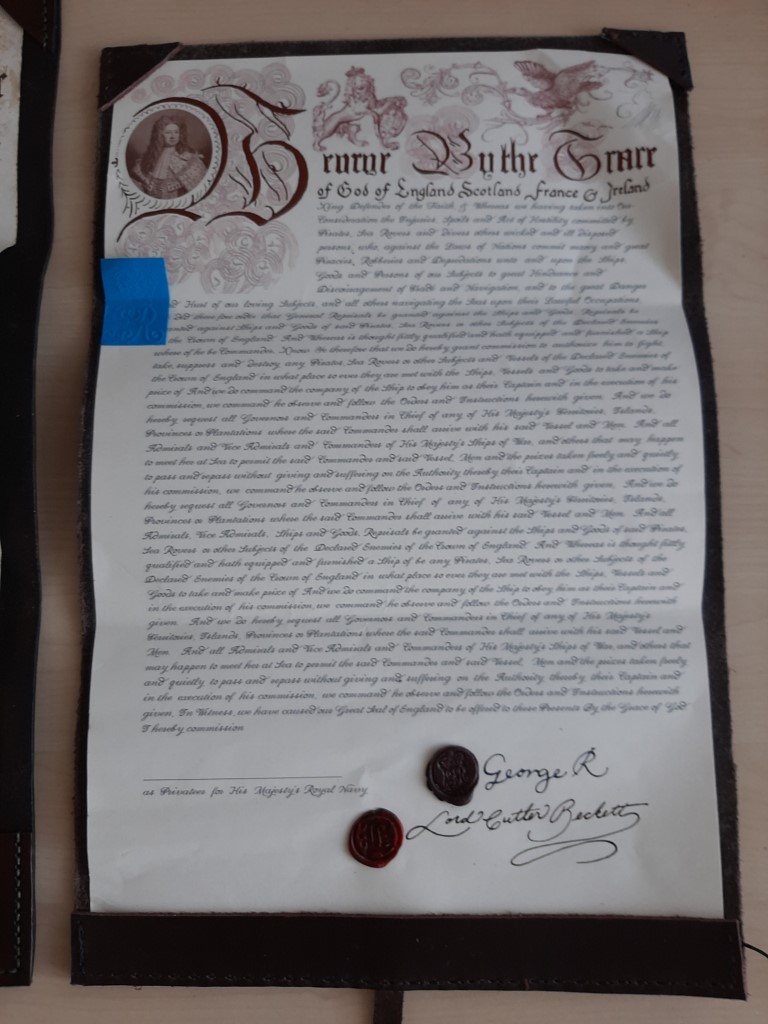 By the Grace
of God of England Scotland France & Ireland
King Defender of the Faith & Whereas we having taken into Our
Consideration the Injuries Spoils and Act of Hostility committed by
Pirates, Sea Rovers and divers others wicked and ill disposed
persons, who against the Laws of Nations commit many and great
Piracies, Robberies and Depredations unto and upon the Ships
Goods and Persons of our Subjects to great Hindrance and
Discouragement of Trade and Navigation, and to the great Danger
and Hurt of our loving Subjects, and all others navigating the Seas upon their Lawful Occupations.
Did therefore order that General Reprisals be granted against the Ships and Goods. Reprisals be
granted against Ships and Goods of said Pirates, Sea Rovers or other Subjects of the Declared Enemies
the Crown of England. And Whereas is thought fitly qualified and hath equipped and furnished a Ship
whereof he is Commander. Know Ye therefore that we do hereby grant commission to authorize him to fight,
take, suppress and destroy any Pirates, Sea Rovers or other Subjects and Vessels of the Declared Enemies of
the Crown of England in what place so ever they are met with the Ships, Vessels and Goods to take and make
prize of. And we do command the company of the Ship to obey him as their Captain and in the execution of his
commission, we command he observe and follow the Orders and Instructions herewith given. And we do
hereby request all Governors and Commanders in Chief of any of His Majesty's Territories, Islands,
Provinces or Plantations where the said Commander shall arrive with his said Vessel and Men. And all
Admirals and Vice Admirals and Commanders of His Majesty's Ships of War, and others that may happen
to meet her at Sea to permit the said Commander and said Vessel, Men and the prizes taken freely and quietly
to pass and repass without giving and suffering on the Authority thereby their Captain and in the execution of
his commission, we command he observe and follow the Orders and Instructions herewith given. And we do
hereby request all Governors and Commanders in Chief of any of His Majesty's Territories, Islands,
Provinces or Plantations where the said Commander shall arrive with his said Vessel and Men. And all
Admirals, Vice Admirals, Ships and Goods. Reprisals be granted against the Ships and Goods of said Pirates,
Sea Rovers or other Subjects of the Declared Enemies of the Crown of England. And Whereas is thought fitly
qualified and hath equipped and furnished a Ship of be any Pirates, Sea Rovers or other Subjects of the
Declared Enemies of the Crown of England in what place so ever they are met with the Ships, Vessels and
Goods to take and make prize of And we do command the company of the Ship to obey him as their Captain and
in the execution of his commission, we command he observe and follow the Orders and Instructions herewith
given. And we do hereby request all Governors and Commanders in Chief of any of His Majesty's
Territories, Islands, Provinces or Plantations where the said Commander shall arrive with his said Vessel and
Men. And all Admirals and Vice Admirals and Commanders of His Majesty's Ships of War, and others that
may happen to meet her at Sea to permit the said Commander and said Vessel, Men and the prizes taken freely
and quietly to pass and repass without giving and suffering on the Authority thereby their Captain and
in the execution of his commission, we command he observe and follow the Orders and Instructions herewith
given. In Witness, we have caused our Great Seal of England to be offered to these Presents By the Grace of God
I hereby commission
as Privateer for His Majesty's Royal Navy
George R
Lord Cutler Beckett